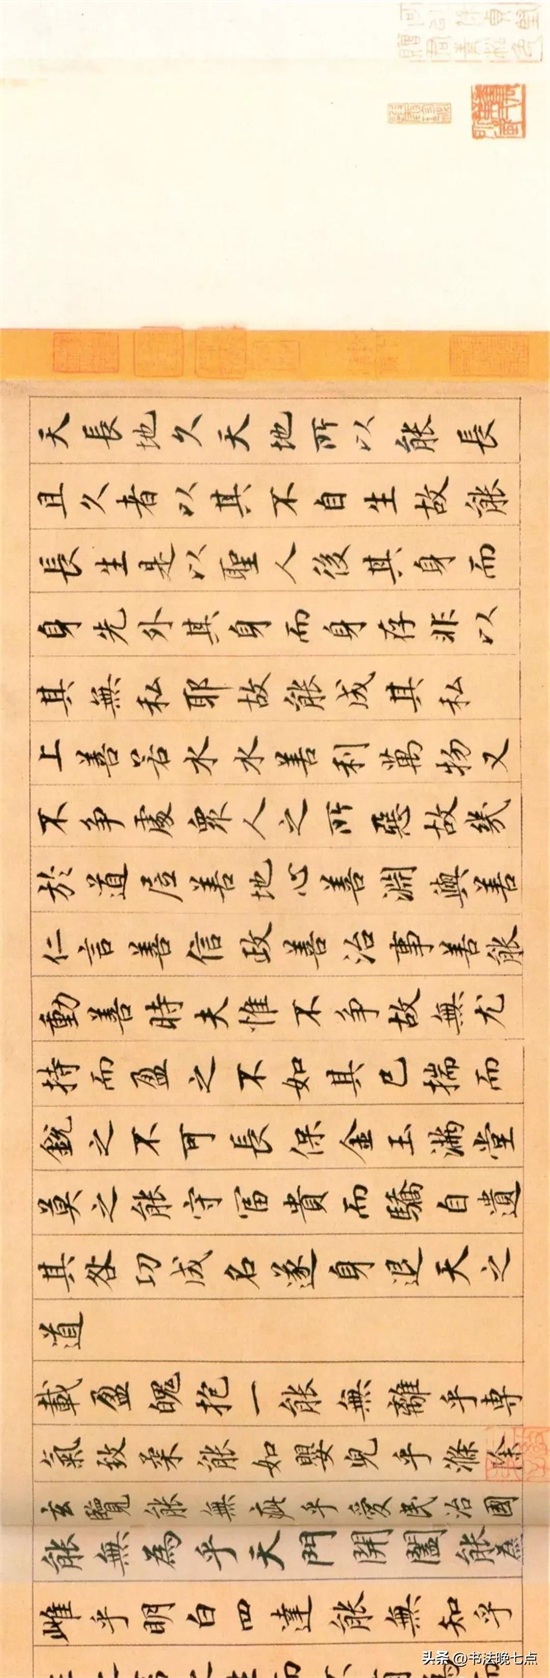 天長地久天地所以能長
且久者以其不自生故能
長生是以聖人後其身而
身先外其身而身存非以
其無私耶故能成其私
上善若水水善利萬物又
不争處衆人之所惡故幾
於道居善地心善淵與善
仁言善信政善治事善能
動善時夫惟不争故無尤
持而盈之不如其已揣而
銳之不可長保金玉滿堂
莫之能守富貴而驕自遺
其咎功成名遂身退天之
道
載盈魄抱一能無離乎専
氣致柔能如嬰兒乎滌除
玄覽能無疵乎愛民治國
能無為乎天門開闔能為
雌乎明白四達能無知乎
头条@书法晚七点